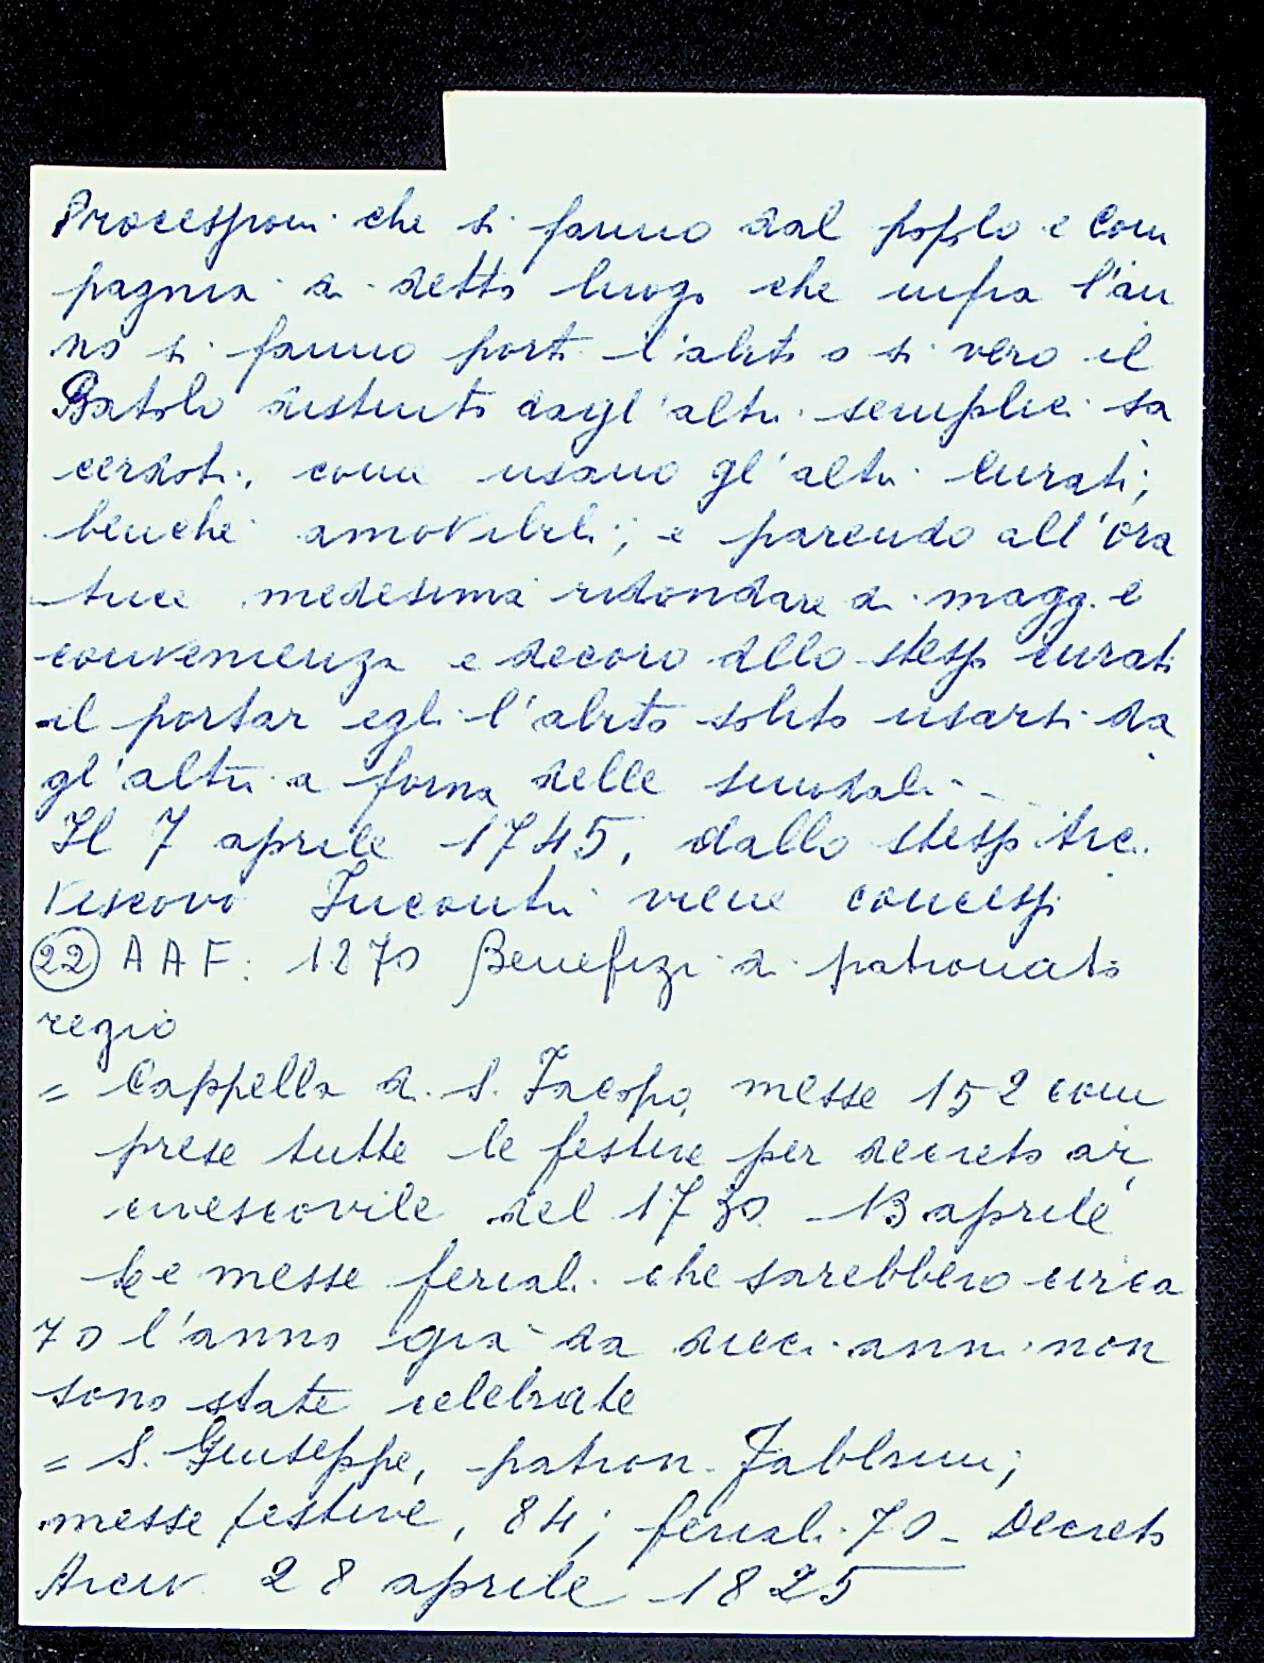 Processioni che si fanno dal popolo e Com
pagnia di detto luogo che infra l'an
no si fanno porti l'abito o si vero il
Batolo distinto dagl'altri semplici sa
cerdoti, come usano gl'altri Curati,
benche amovibili; e parendo all'Ora
trice medesima ridondare di magg.e
convenienza e decoro dllo stesso curato
il portar egli l'abito solito usarsi da
gl'altri a forma delle sinodali - -
Il 7 aprile 1745, dallo stesso Arci
vescovo Incontri viene concesso
(22) AAF: 1270 Benefizi di patronato
regio
= Cappella di S. Jacopo, messe 152 com
prese tutte le festive per decreto ar
civescovile del 1730 - 13 aprile
Le messe feriali che sarebbero circa
70 l'anno già da dieci anni non
sono state celebrate
= S. Giuseppe, patron. Fabbrini;
messe festive, 84; feriali 70 - Decreto
Arciv. 28 aprile 1825